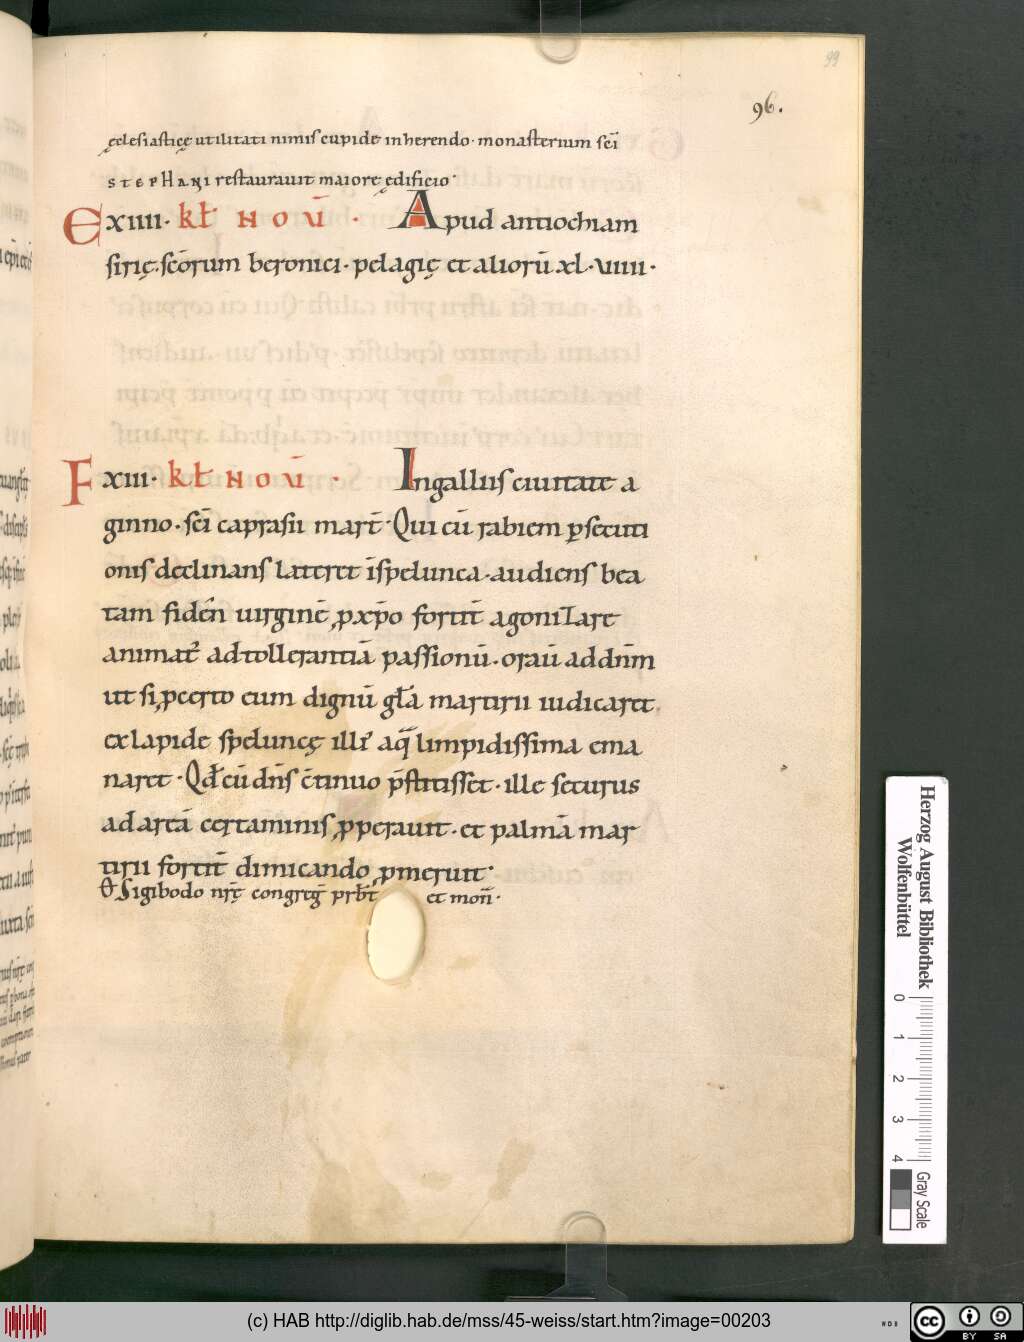 99
96.
ęclesiasticę utilitati nimis cupide inherendo · monasterium sc̄i
STEPHANI restauravit maiorę ędificio·
E xıııı · kł NOV̄ · Apud antiochiam
sirię · sc̄orum beronici · pelagię et aliorū xl · viiii ·
F xiii · kł NOV̄ · In galliis civitate a
ginno · sc̄i caprasii mart̄ · Qui cū rabiem ꝑsecuti
onis declinans lateret īspelunca · audiens bea
tam fidēn uirginē ꝓ xp̄o fortit̄ agonizare
animat᷑ ad tollerantiā passionū · oraū ad dn̄m
ut si ꝓcerto eum dignū gl̄a martirii iudicaret
ex lapide speluncę illi᷒ aq̄ limpidissima ema
naret · Qđ cū dn̄s c̄tinuo p̄stitisset · ille securus
ad arcā certaminis ꝓperauit · et palmā mar
tirii fortit̄ dimicando ꝓmeruit ·
Sigibodo nr̄ę congreḡ prƀt et mon̄ ·
Herzog August Bibliothek
Wolfenbüttel
0
1
2
3
4
Gray Scale
(c) HAB http://diglib.hab.de/mss/45-weiss/start.htm?image=00203
cc BY SA